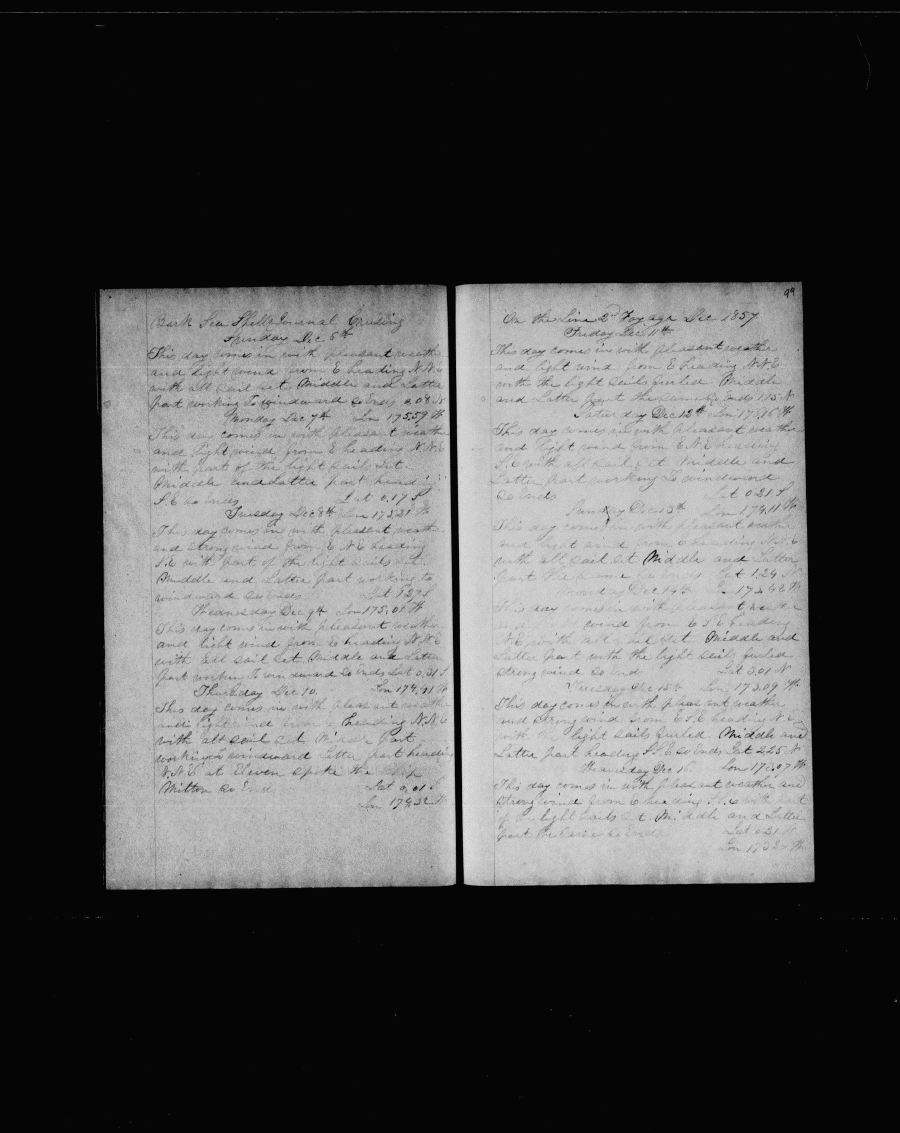 Bark Sea Shell's Journal Cruising
Sunday Dec 6th
This day comes in with pleasant weathe
and light wind from E heading N.N.E
with all sail set Middle and Latter
part working to windward so Ends 0,08 N
Monday Dec 7th Lon 175.59 W
This day comes in with pleasant weathe
and light wind from E heading N.N.E
with part of the light sails set
Middle and Latter part heading
S.E so Ends Lat 0.17 S
Tuesday Dec 8th Lon W
This day comes in with pleasant weathe
and strong wind from E N E heading
S.E with part of the light sails set
Middle and Latter part working to
windward so Ends Lat S
Wednesday Dec 9th Lon 175,01 W
This day comes in with pleasant weather
and light wind from E heading N.N.E
with all sail set Middle and Latter
part working to windward so Ends Lat 0,31 S
Thursday Dec 10. Lon 174,41 W
This day comes in with pleasant weathe
and light wind from E heading N.N.E
with all sail set Middle Part
working to windward Latter part heading
N.N.E at Eleven spoke the Ship
Milton so End Lat 0,01 S
Lon W
99
On the Line 2d Voyage Dec 1857
Friday Dec 11th
This day comes in with pleasant weathe
and light wind from E heading N.N.E
with the light sails furled Middle
and Latter part the same so Ends N
Saturday Dec 12th Lon W
This day comes in with pleasant weathe
and light wind from E N E heading
S.E with all sail set Middle and
Latter part working to windward
so Ends Lat 0.31
Sunday Dec 13th Lon 174.11 W
This day comes in with pleasant weathe
and light wind from E heading N.N.E
with all sail set Middle and Latter
part the same so Ends Lat 1.29 N
Monday Dec 14th W
This day comes in with pleasant weathe
and wind from E S E heading
N.E with all sail set Middle and
Latter part with the light sails furled
strong wind so End Lat 3,01 N
Tuesday Dec 15th Lon 173.09 W
This day comes in with pleasant weathe
and strong wind from E S.E heading N.E
with the light sails furled. Middle and
Latter part heading S.S.E so Ends Lat 2.25 N
Wednesday Dec 16. Lon 173.07 W
This day comes in with pleasant weather and
strong wind from E heading S.S.E with part
of the light sails set. Middle and Latter
part the same so Ends Lat
Lon W